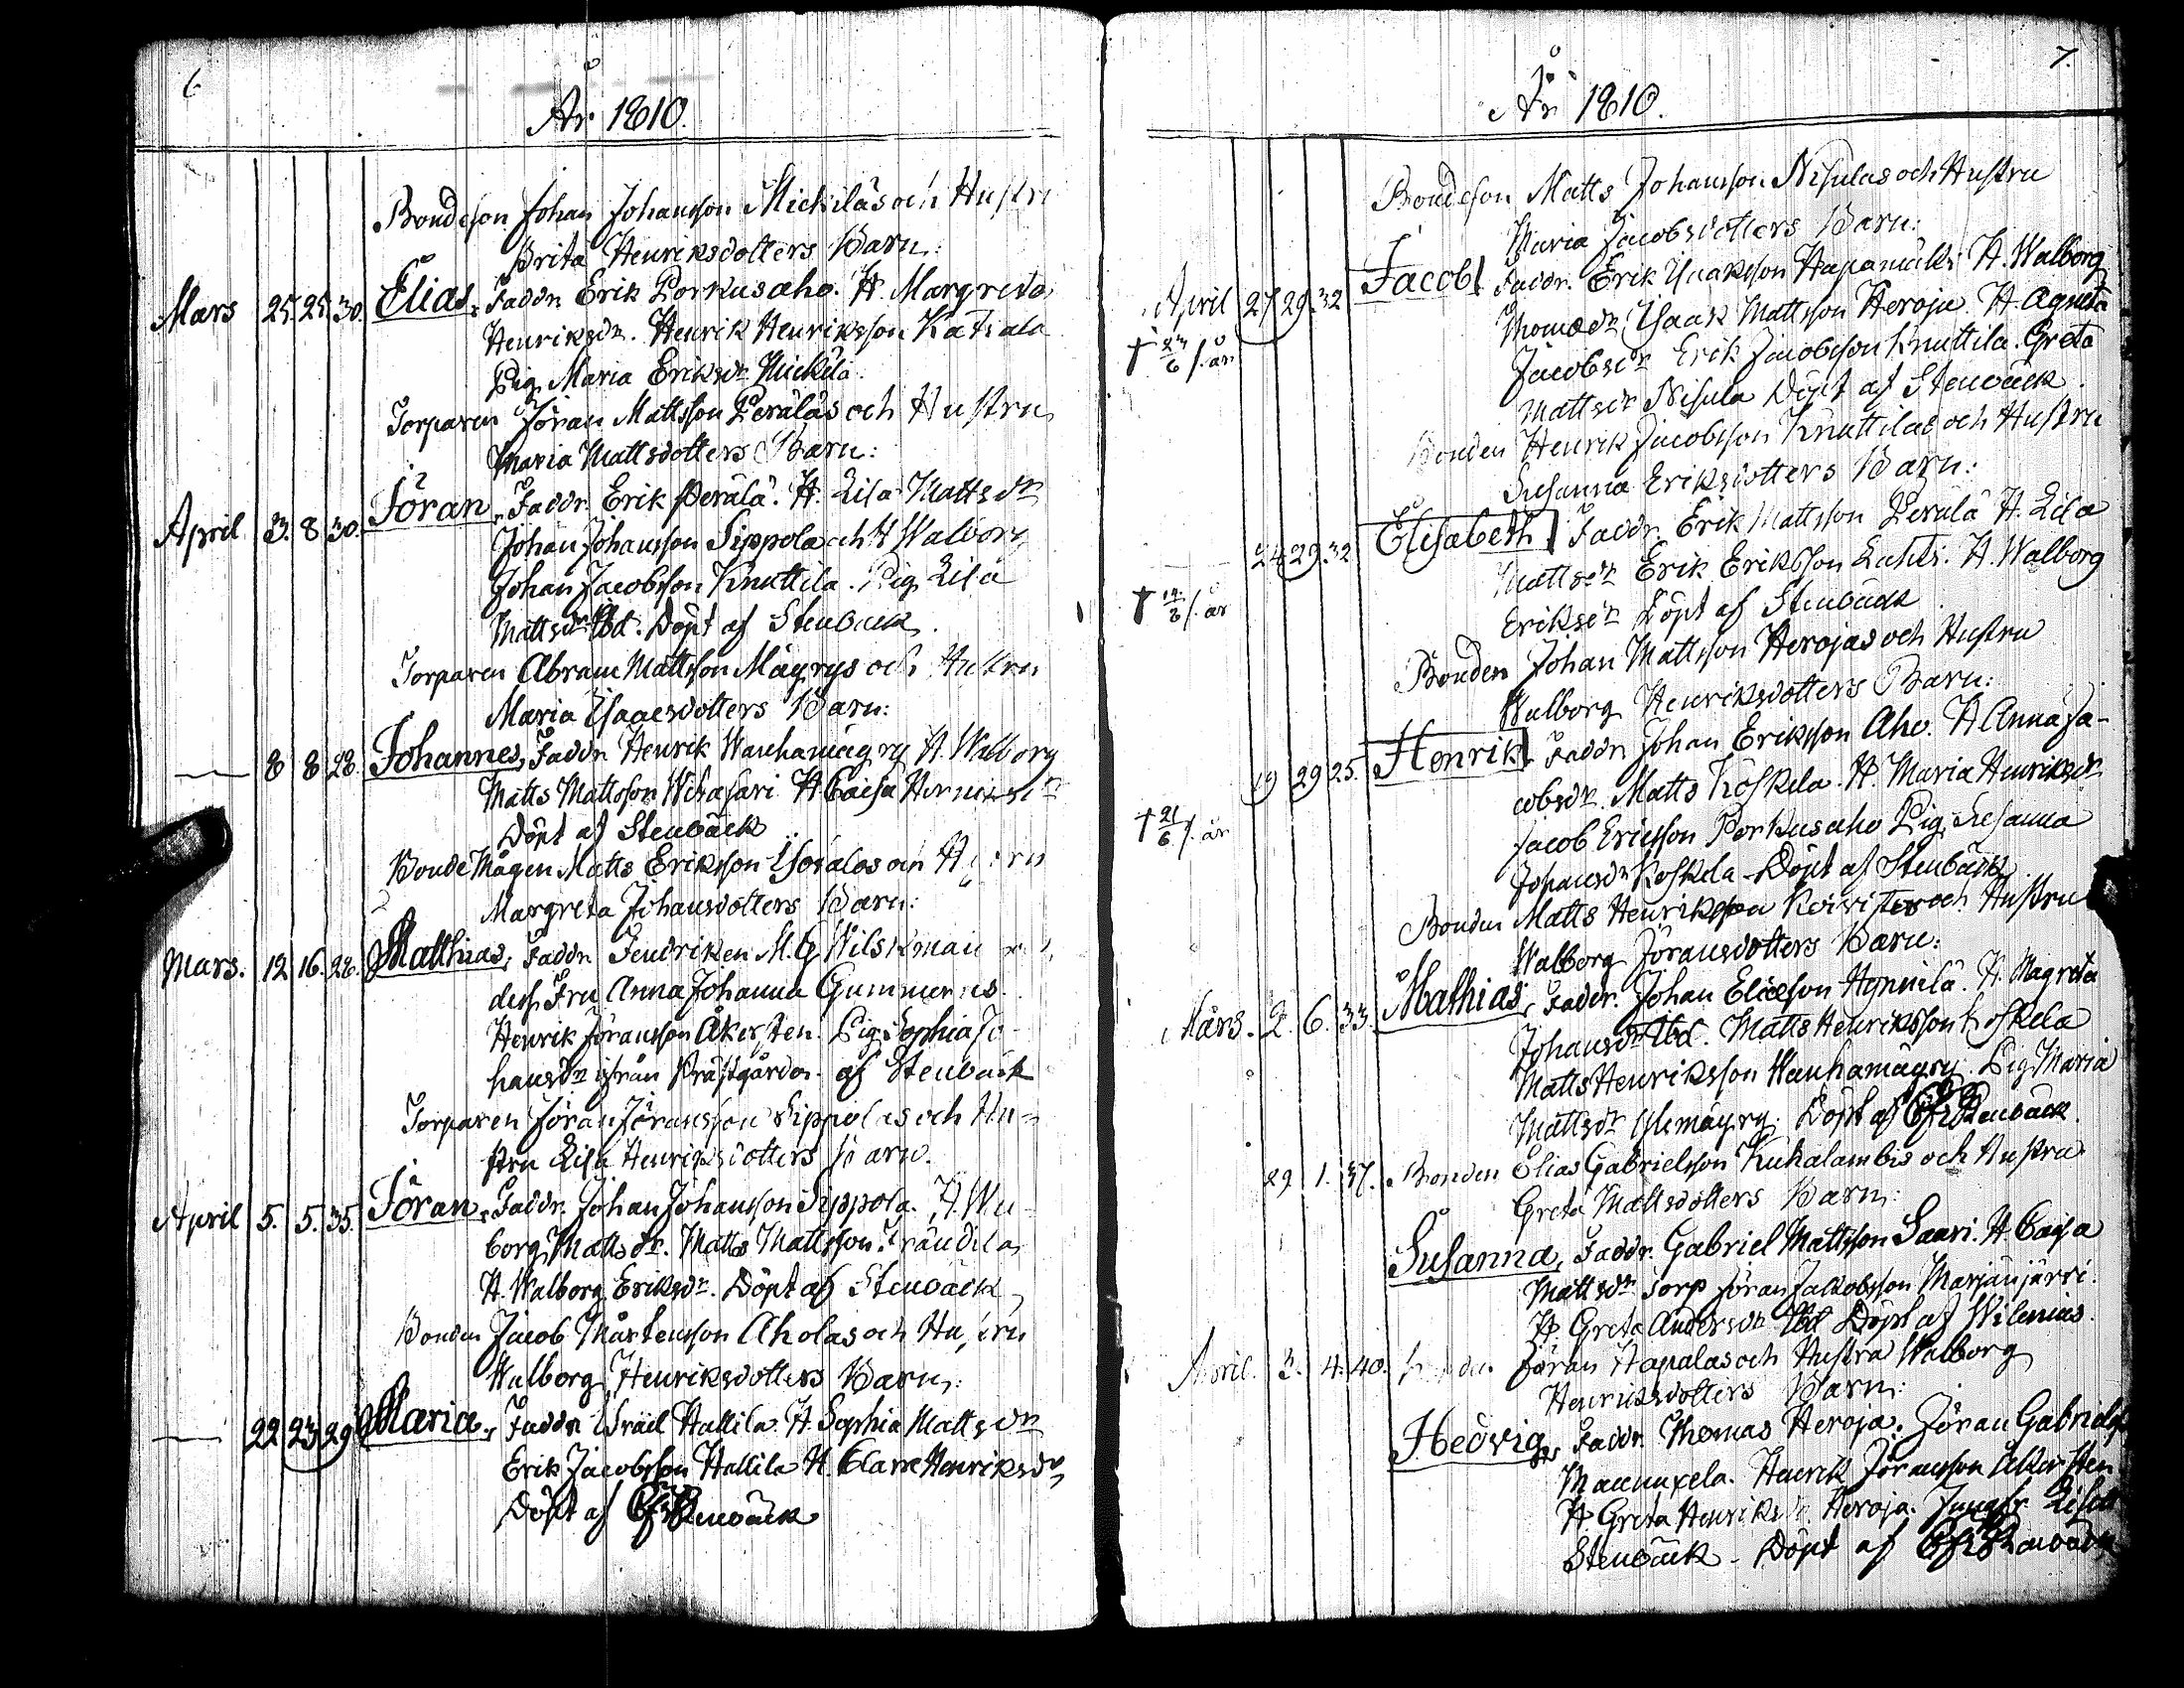 6
År 1810.
Bondeson Johan Johansson Mickiläs och Hustru
Brita Henriksdotters Barn:
Mars 25. 25. 30. Elias, Faddr. Erik Porkusaho. H. Margreta
Henriksdr. Henrik Henriksson Katiala
Pig. Maria Eriksdr Mickilä.
Torparen Jöran Mattsson Peräläs och Hustru
Maria Mattsdotters Barn:
April 3. 8 30. Jöran, Faddr. Erik Perälä. H. Lisa Mattsdr
Johan Johansson Sippola och H Walborg
Johan Jacobsson Knuttila. Pig. Lisa
Mattsdr Ibd. Döpt af Stenbäck.
Torparen Abram Mattsson Mäyrys och Hustru
Maria Isaacsdotters Barn:
8 8 28 Johannes, Faddr Henrik Wanhamäyry H. Walborg
Matts Mattsson Wiitasari H Caisa
Döpt af Stenbäck
Bonde Mågen Matts Eriksson och
Margreta Johansdotters Barn:
Mars. 12 16. 28. Matthias, Faddr Fendriken M. G Wilskman
dess Fru Anna Johanna Gummerus
Henrik Jöransson Åkersten. Pig Sophia Jo-
hansdr ifrån Prästgården. af Stenbäck
Torparen Jöran Jöransson Sippolas och Hu-
stru Lisa Henriksdotters Barn.
April 5. 5. 35. Jöran, Faddr. Johan Johansson Sippola. H. Wa-
borg Mattsdr. Matts Mattsson Frändila
H. Walborg Eriksdr. Döpt af Stenbäck
Bonden Jacob Mårtensson Aholas och Hustru
Walborg Henriksdotters Barn:
22 23 29 Maria, Faddr Israel Hallila H. Sophia Mattsdr
Erik Jacobsson Hallila H. Clara Henriksdr
Döpt af Stenbäck
7.
År 1810.
Bondeson Matts Johansson Nisulas och Hustru
Maria Jacobsdotters Barn:
April 27 29. 32 Jacob Faddr. Erik Isaksson Haapamäki H. Walborg
Thomædr Isaak Mattsson Heroja. H. Agneta
† 27/6 s. år
Jacobsdr Erik Jacobsson Knuttila. Greta
Mattsdr Nisula Döpt af Stenbäck.
Bonden Henrik Jacobsson Knuttilas och Hustru
Susanna Eriksdotters Barn:
24 29. 32 Elisabeth Faddr. Erik Mattsson Perälä H. Lisa
Mattsdr Erik Eriksson Lahti. H. Walborg
† 14/6 s. år
Eriksdr Döpt af Stenbäck
Bonden Johan Mattsson Herojas och Hustru
Walborg Henriksdotters Barn:
19 29 25. Henrik Faddr Johan Eriksson Aho. H Anna Ja-
cobsdr. Matts Koskela. H. Maria Henriksdr
† 21/6 s. år
Jacob Ericsson Porkusaho Pig. Susanna
Johansdr Koskela - Döpt af Stenbäck
Bonden Matts Henriksson Koivistos och Hustru
Walborg Jöransdotters Barn:
Mars. 2. 6. 33. Mathias, Faddr. Johan Eliæson H. Magreta
Johansdr Ibd. Matts Henriksson Koskela
Matts Henriksson Wanhamäyry. Pig Maria
Mattsdr Ylimäyry. Döpt af Stenbäck.
29 1. 37. Bonden Elias Gabrielsson Kuhalambis och Hustru
Greta Mattsdotters Barn:
Susanna, Faddr. Gabriel Mattsson Saari. H. Caisa
Mattsdr Torp Jöran Jakobsson Marjänjärvi.
H. Greta Andersdr Ibd Döpt af Wilenius.
April. 3. 4. 40. Bonden Jöran Hapalas och Hustru Walborg
Henriksdotters Barn:
Hedvig, Faddr. Thomas Heroja. Jöran Gabriels
Henrik Jöransson Åkersten
H. Greta Heroja. Jungfr Lisa
Stenbäck - Döpt af Stenbäck